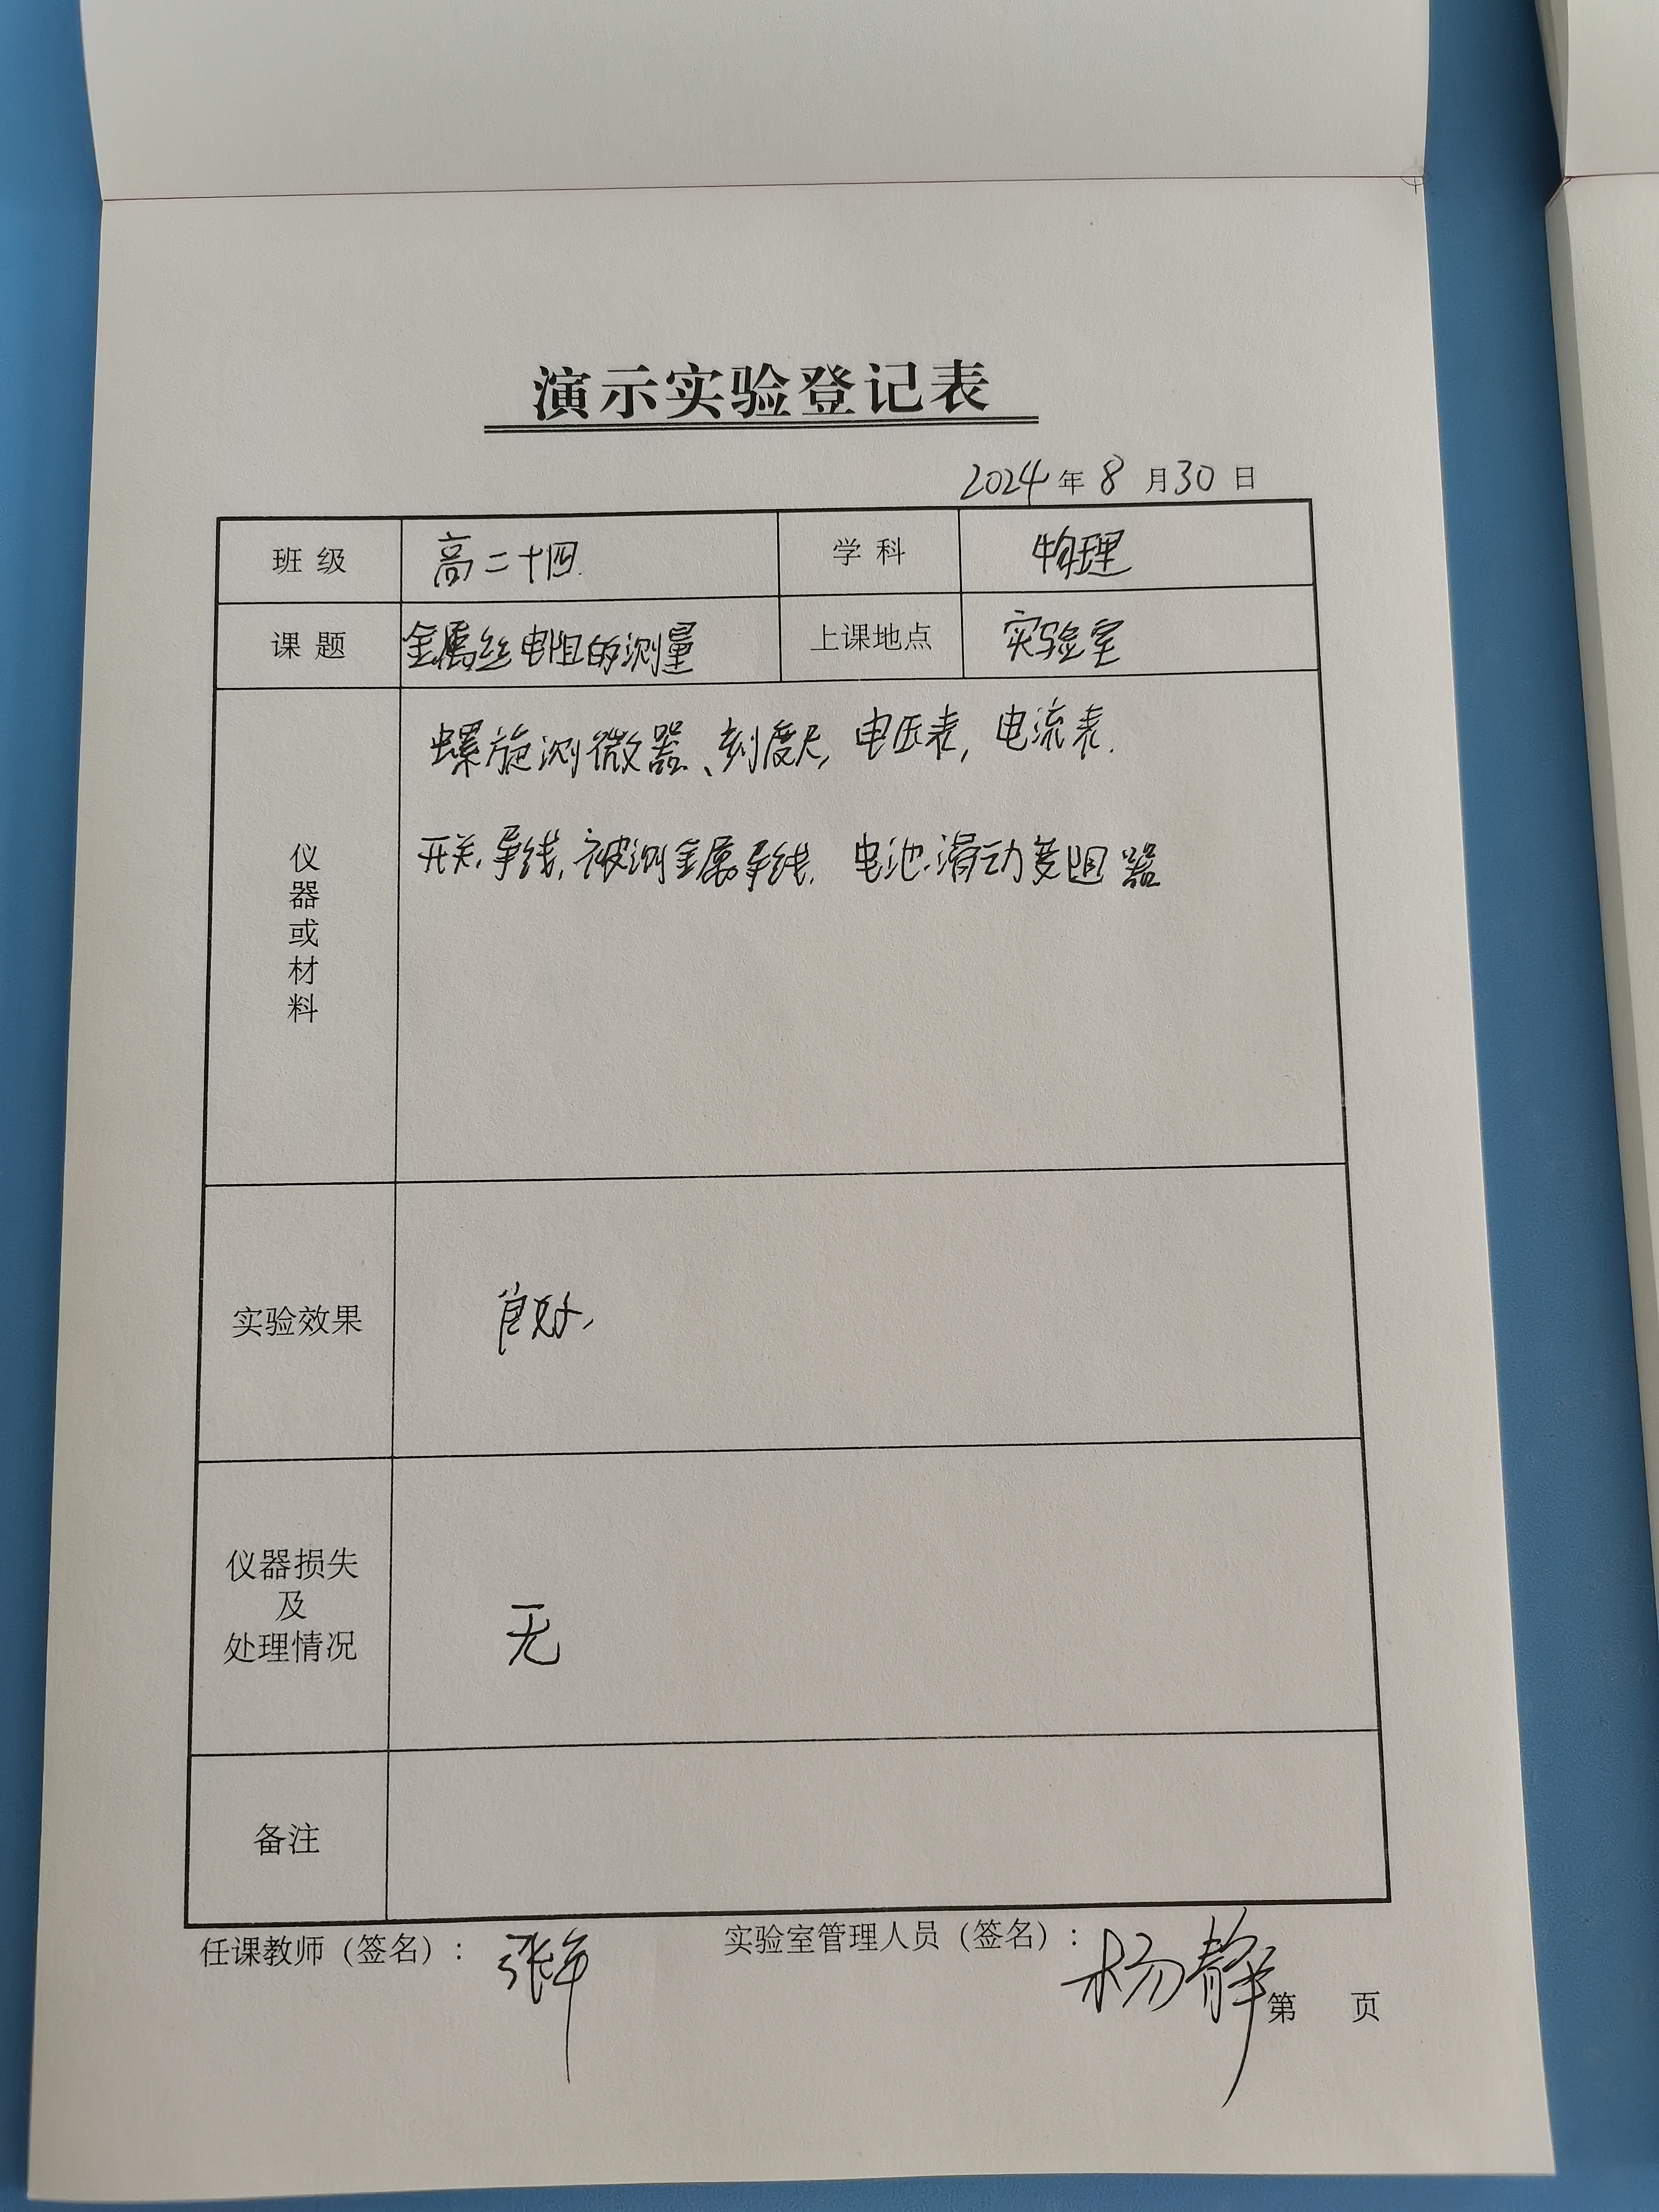 演示实验登记表
2024年8月30日
班级 高二十四. 学科 物理
课题 金属丝电阻的测量 上课地点 实验室
仪器或材料 螺旋测微器、刻度尺, 电压表, 电流表.
开关, 导线, 被测金属导线. 电池. 滑动变阻器
实验效果 良好,
仪器损失
及
处理情况 无
备注
任课教师（签名）： 实验室管理人员（签名）：杨静
第 页